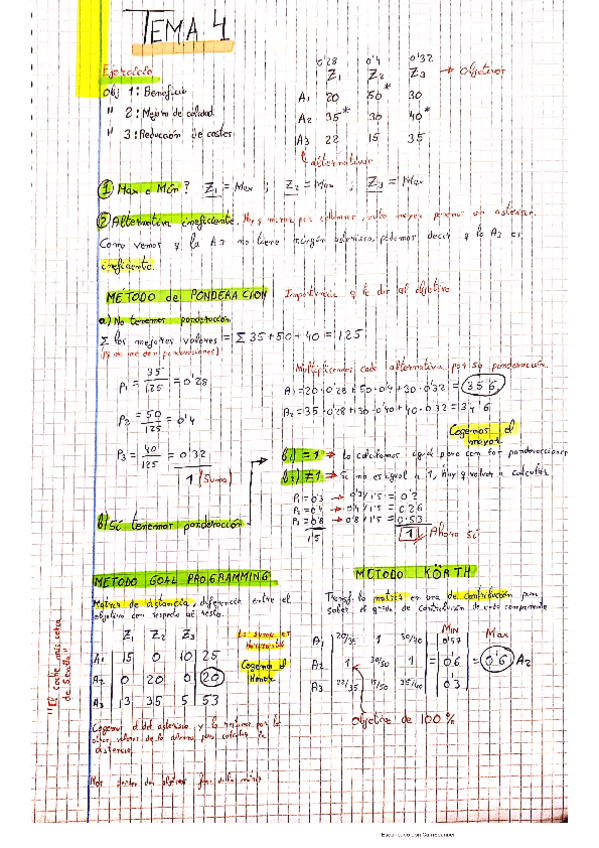 TEMA 4
Ejercicio
Obj 1: Beneficio
" 2: Mejora de calidad
" 3: Reducción de costes
0'28 0'4 0'32
Z1 Z2 Z3 → Objetivos
A1 20 50* 30
A2 35* 30 40*
A3 22 15 35
↳ alternativas
① Max o Min? Z1 = Max ; Z2 = Max ; Z3 = Max
② Alternativa ineficiente. Hay q mirar por columnas, valor mayor ponemos un asterisco.
Como vemos q la A3 no tiene ningún asterisco, podemos decir q la A3 es
ineficiente.
MÉTODO de PONDERACIÓN Importancia q le doy al objetivo
a) No tenemos ponderación
Σ los mejores valores = Σ 35+50+40 = 125
(Si no me dan ponderaciones)
P1 = 35/125 = 0'28
P2 = 50/125 = 0'4
P3 = 40/125 = 0'32
1 (Suma)
Multiplicamos cada alternativa por su ponderación
A1 = 20·0'28 + 50·0'4 + 30·0'32 = 35'6
A2 = 35·0'28 + 30·0'40 + 40·0'32 = 34'6
Cogemos el mayor
b) Si tenemos ponderación
b1) = 1 → Lo calculamos igual pero con las ponderaciones
b2) ≠ 1 → Si no es igual a 1, hay q volver a calcular
P1 = 0'3 → 0'3/1'5 = 0'2
P2 = 0'4 → 0'4/1'5 = 0'26
P3 = 0'8 → 0'8/1'5 = 0'53
1'5 1 Ahora sí
MÉTODO GOAL PROGRAMMING
Matriz de distancia, diferencia entre el
objetivo con respecto al resto.
Z1 Z2 Z3
A1 15 0 10 25
A2 0 20 0 20
A3 13 35 5 53
La suma es
Horizontal
Cogemos el
Menor
Cogemos el del asterisco y lo restamos por los
otros valores de la columna para calcular la
distancia.
"El coche más cerca
de Sevilla"
MÉTODO KÖRTH
Transf. la matriz en una de contribución para
saber el grado de contribución de cada componente
MIN Max
A1 20/35 1 30/40 0'57
A2 1 30/50 1 = 0'6 = 0'6 A2
A3 22/35 15/50 35/40 0'3
objetivo de 100%